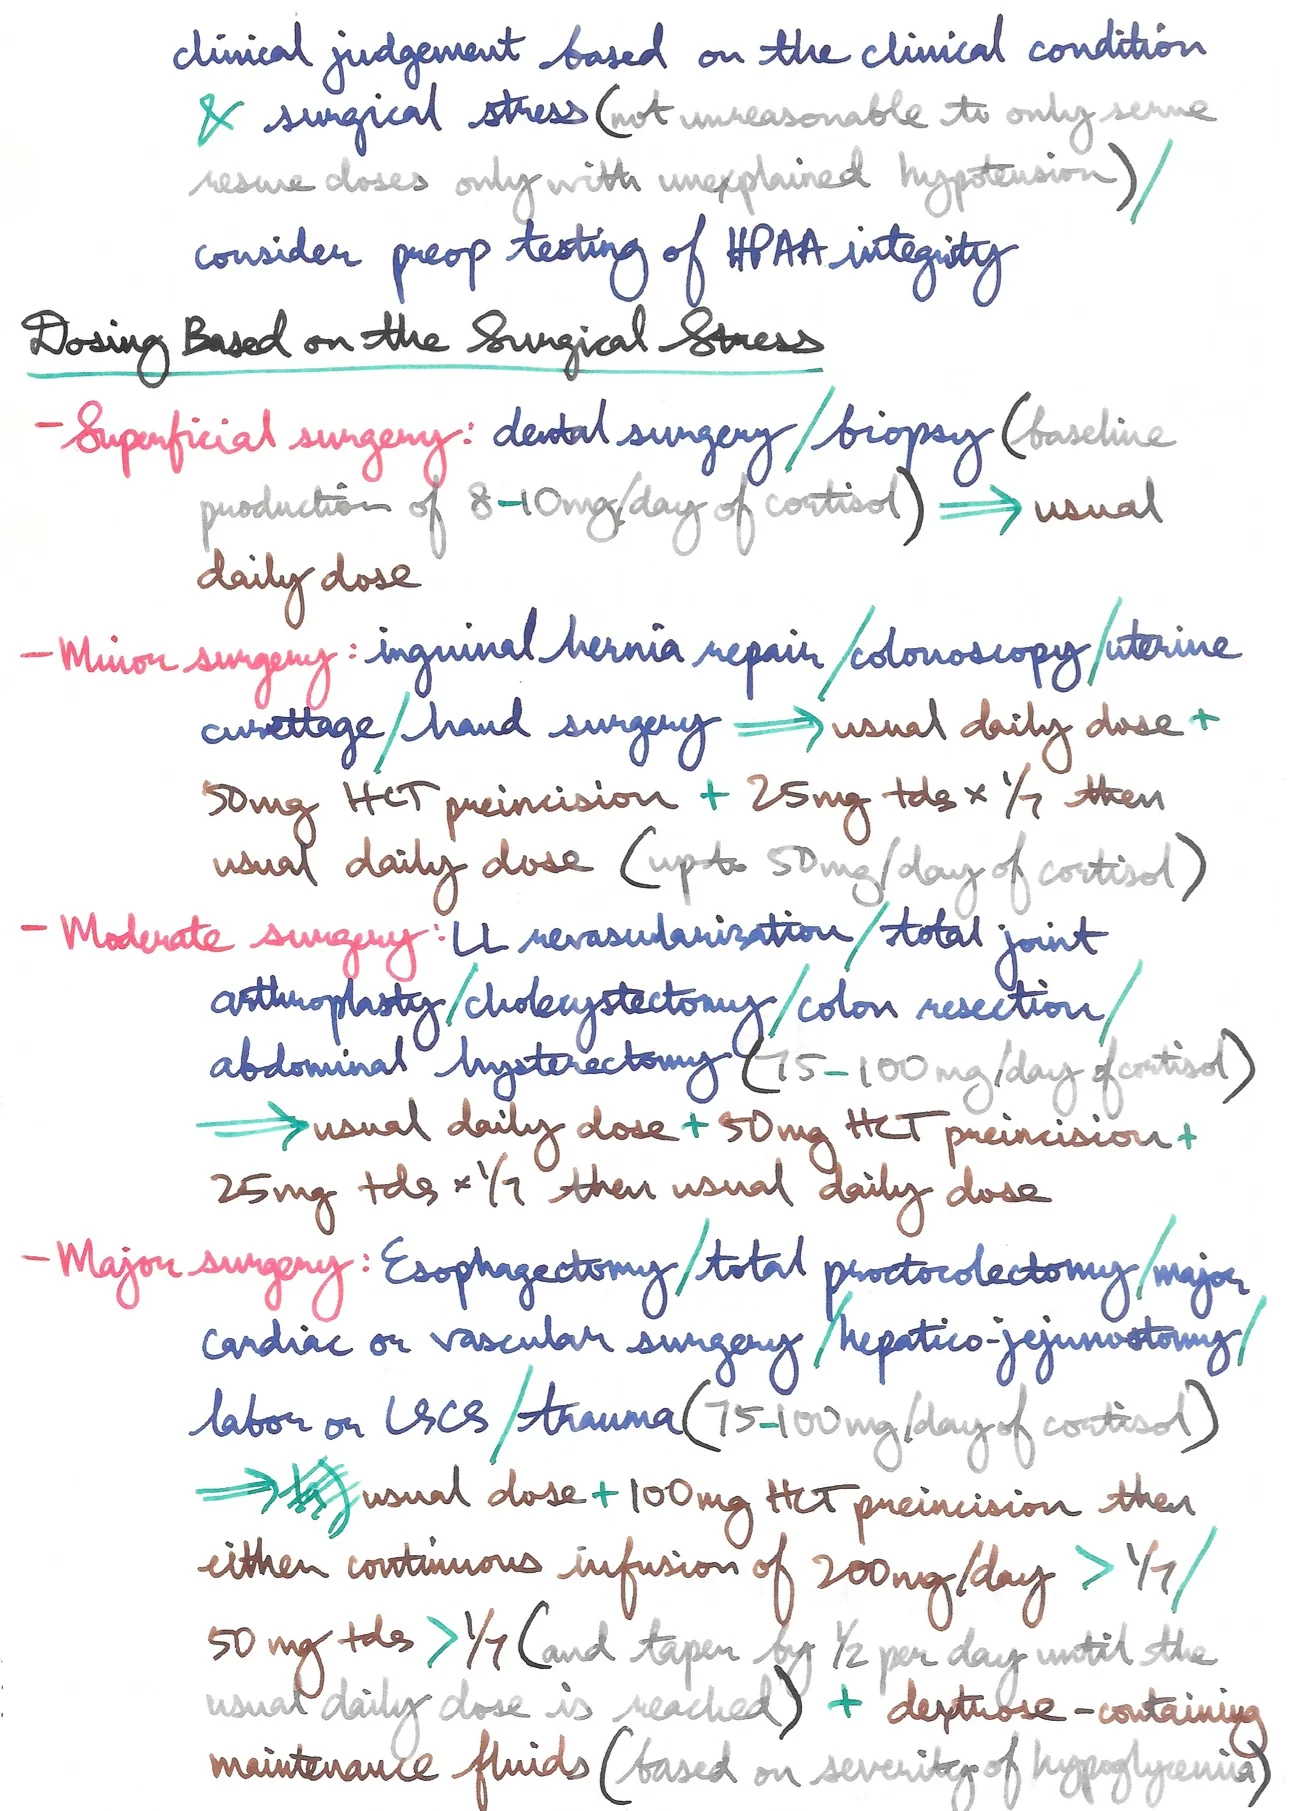 clinical judgement based on the clinical condition
& surgical stress (not unreasonable to only serve
rescue doses only with unexplained hypotension) /
consider preop testing of HPAA integrity
Dosing Based on the Surgical Stress
- Superficial surgery: dental surgery / biopsy (baseline
production of 8-10mg/day of cortisol) ⟹ usual
daily dose
- Minor surgery: inguinal hernia repair / colonoscopy / uterine
curettage / hand surgery ⟹ usual daily dose +
50mg HCT preincision + 25mg tds × 1/7 then
usual daily dose (upto 50mg/day of cortisol)
- Moderate surgery: LL revascularization / total joint
arthroplasty / cholecystectomy / colon resection /
abdominal hysterectomy (75-100mg/day of cortisol)
⟹ usual daily dose + 50mg HCT preincision +
25mg tds × 1/7 then usual daily dose
- Major surgery: Esophagectomy / total proctocolectomy / major
cardiac or vascular surgery / hepatico-jejunostomy /
labor or LSCS / trauma (75-100mg/day of cortisol)
⟹ usual dose + 100mg HCT preincision then
either continuous infusion of 200mg/day > 1/7 /
50 mg tds > 1/7 (and taper by 1/2 per day until the
usual daily dose is reached) + dextrose-containing
maintenance fluids (based on severity of hypoglycemia)